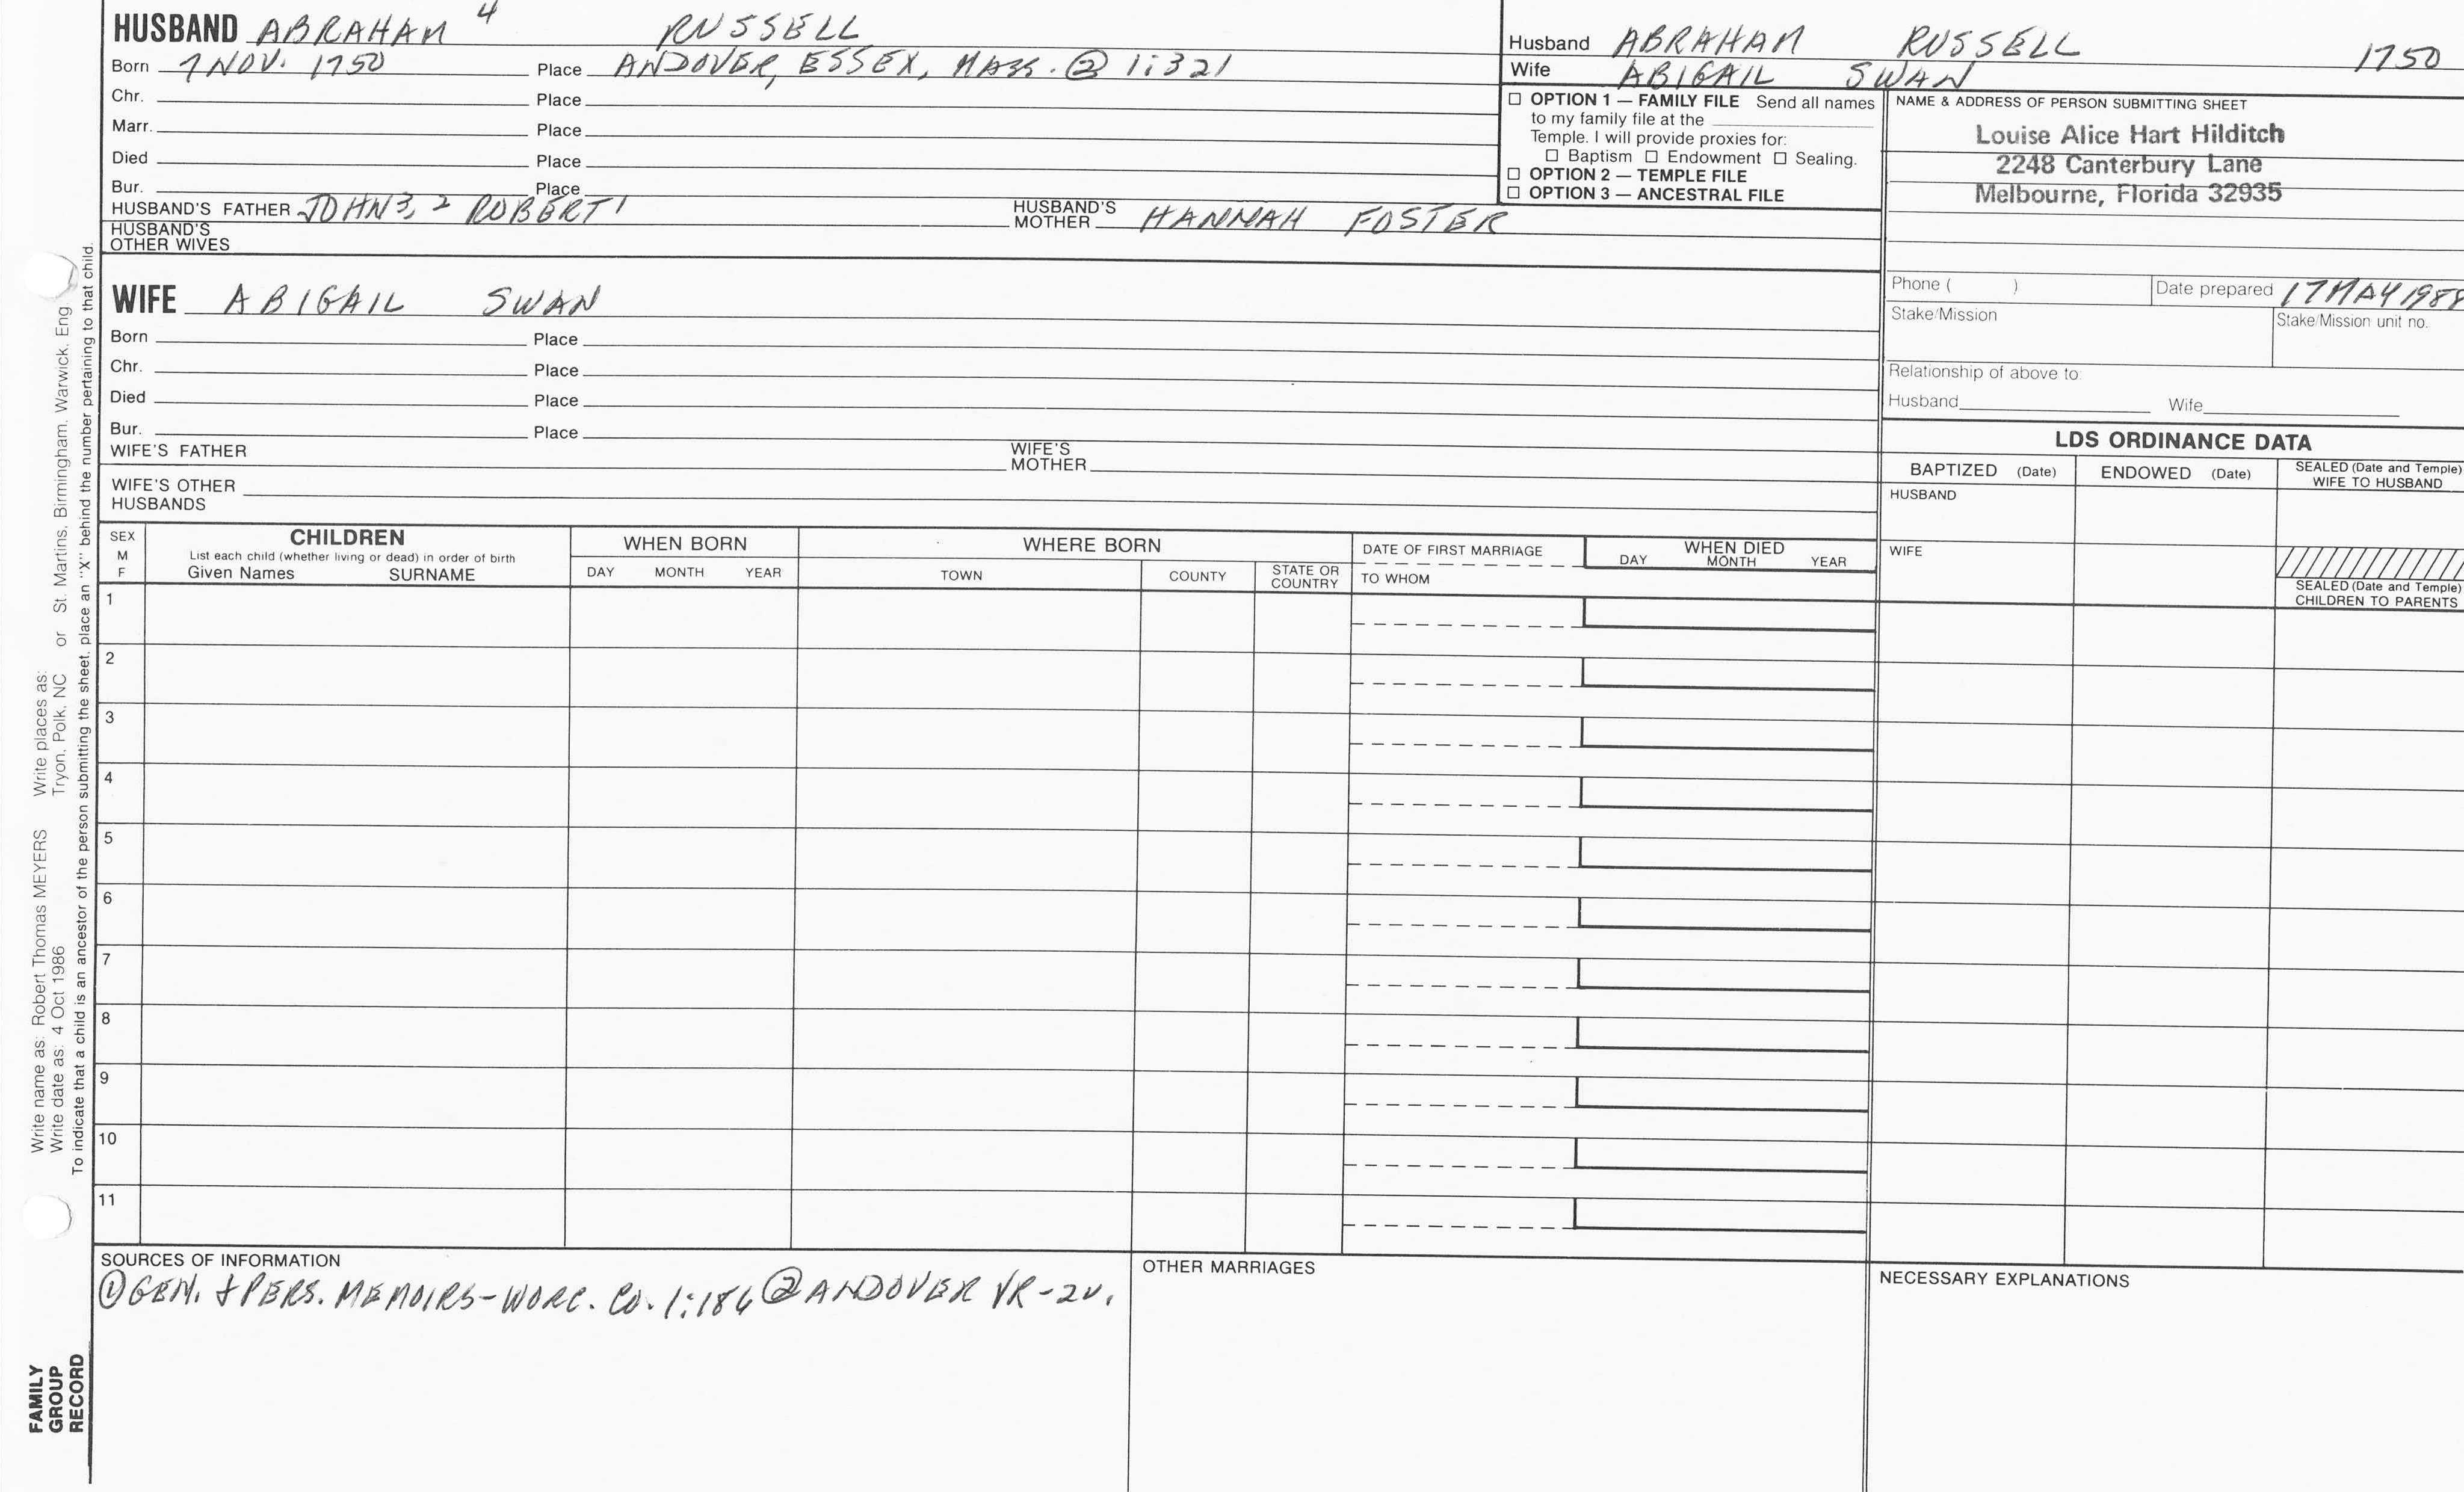 HUSBAND ABRAHAM 4 RUSSELL
Born 7 NOV. 1750 Place ANDOVER, ESSEX, MASS. ② 1:321
Chr. Place
Marr. Place
Died Place
Bur. Place
HUSBAND'S FATHER JOHN3, 2 ROBERT1 HUSBAND'S MOTHER HANNAH FOSTER
HUSBAND'S
OTHER WIVES
WIFE ABIGAIL SWAN
Born Place
Chr. Place
Died Place
Bur. Place
WIFE'S FATHER WIFE'S MOTHER
WIFE'S OTHER
HUSBANDS
Husband ABRAHAM RUSSELL 1750
Wife ABIGAIL SWAN
☐ OPTION 1 — FAMILY FILE Send all names
to my family file at the
Temple. I will provide proxies for:
☐ Baptism ☐ Endowment ☐ Sealing.
☐ OPTION 2 — TEMPLE FILE
☐ OPTION 3 — ANCESTRAL FILE
NAME & ADDRESS OF PERSON SUBMITTING SHEET
Louise Alice Hart Hilditch
2248 Canterbury Lane
Melbourne, Florida 32935
Phone ( ) Date prepared 17 MAY 1988
Stake/Mission Stake/Mission unit no.
Relationship of above to:
Husband Wife
LDS ORDINANCE DATA
BAPTIZED (Date) ENDOWED (Date) SEALED (Date and Temple)
WIFE TO HUSBAND
HUSBAND
WIFE
SEALED (Date and Temple)
CHILDREN TO PARENTS
SEX
M
F
CHILDREN
List each child (whether living or dead) in order of birth
Given Names SURNAME
WHEN BORN
DAY MONTH YEAR
WHERE BORN
TOWN COUNTY STATE OR
COUNTRY
DATE OF FIRST MARRIAGE
TO WHOM
WHEN DIED
DAY MONTH YEAR
1
2
3
4
5
6
7
8
9
10
11
SOURCES OF INFORMATION
① GEN. & PERS. MEMOIRS-WORC. CO. 1:186 ② ANDOVER VR-2V.
OTHER MARRIAGES
NECESSARY EXPLANATIONS
Write name as: Robert Thomas MEYERS Write places as:
Write date as: 4 Oct 1986 Tryon, Polk, NC or St. Martins, Birmingham, Warwick, Eng
To indicate that a child is an ancestor of the person submitting the sheet, place an "X" behind the number pertaining to that child.
FAMILY
GROUP
RECORD